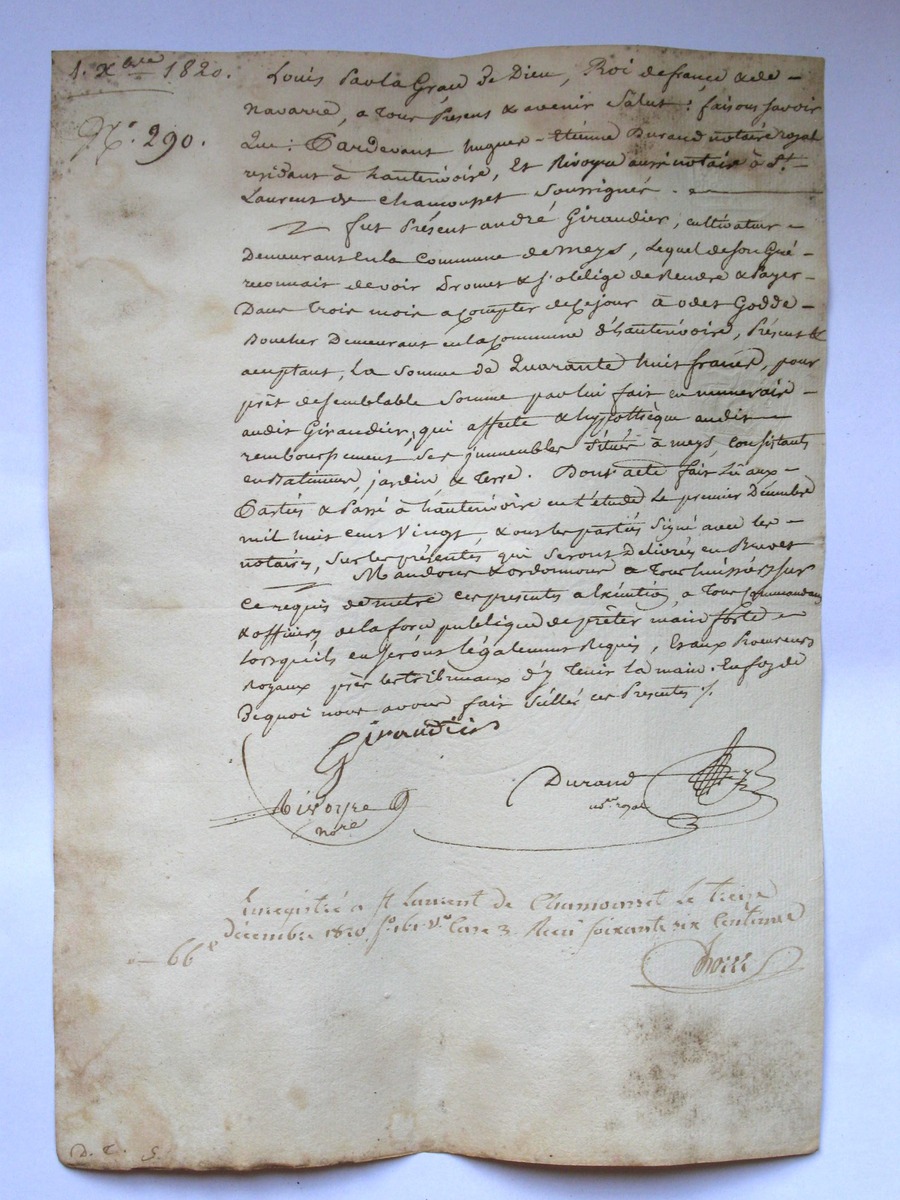 1. Xbre 1820.
N.o 290.
Louis Par la Grace de Dieu, Roi de france & de
navarre, a Tous Présens & avenir Salut : faisons savoir
Que : Pardevant hugues-Etienne Durand notaire royal
residant à hauterivoire, Et Rivoyre aussi notaire à St.
Laurent de chamousset soussignés.
fut Présent andré Giraudier, cultivateur
Demeurant en la Commune de meys, Lequel de son Gré
reconnait devoir Promet & s'oblige de Rendre & Payer
Dans Trois mois a compter de ce jour à odet Godde
Boucher Demeurant en la Commune d'hauterivoire, Présent &
acceptant, La Somme de Quarante huit francs, pour
prêt de semblable Somme par lui fait en numeraire
audit Giraudier, qui affecte & hypothèque audit
remboursement ses jmmeubles Situés à meys, consistants
en Batiment, jardin & Terre. Dont acte fait Lû aux
Parties & Passé à hauterivoire en l'étude Le premier Décembre
mil huit cent Vingt, & ont les parties Signé avec les
notaires, Sur les présentes qui seront Délivrés en Brevet
Mandons & ordonnons a Tous huissiers sur
ce requis de mettre ces presentes a Exécution, a Tous Commandans
& officiers de la force publique de prêter main forte
lorsqu'ils en Seront légalement Requis, Et aux Procureurs
Royaux près les tribunaux d'y Tenir la main. En foy de
Dequoi nous avons fait Sceller ces Presentes ./.
Giraudier
Durand
not.re royal
Rivoyre
nore
Enregistré a St Laurent de Chamousset le treize
décembre 1820. fo. 161 Vo. Case 3. Recu soixante six Centimes
66 c
D. T. S.